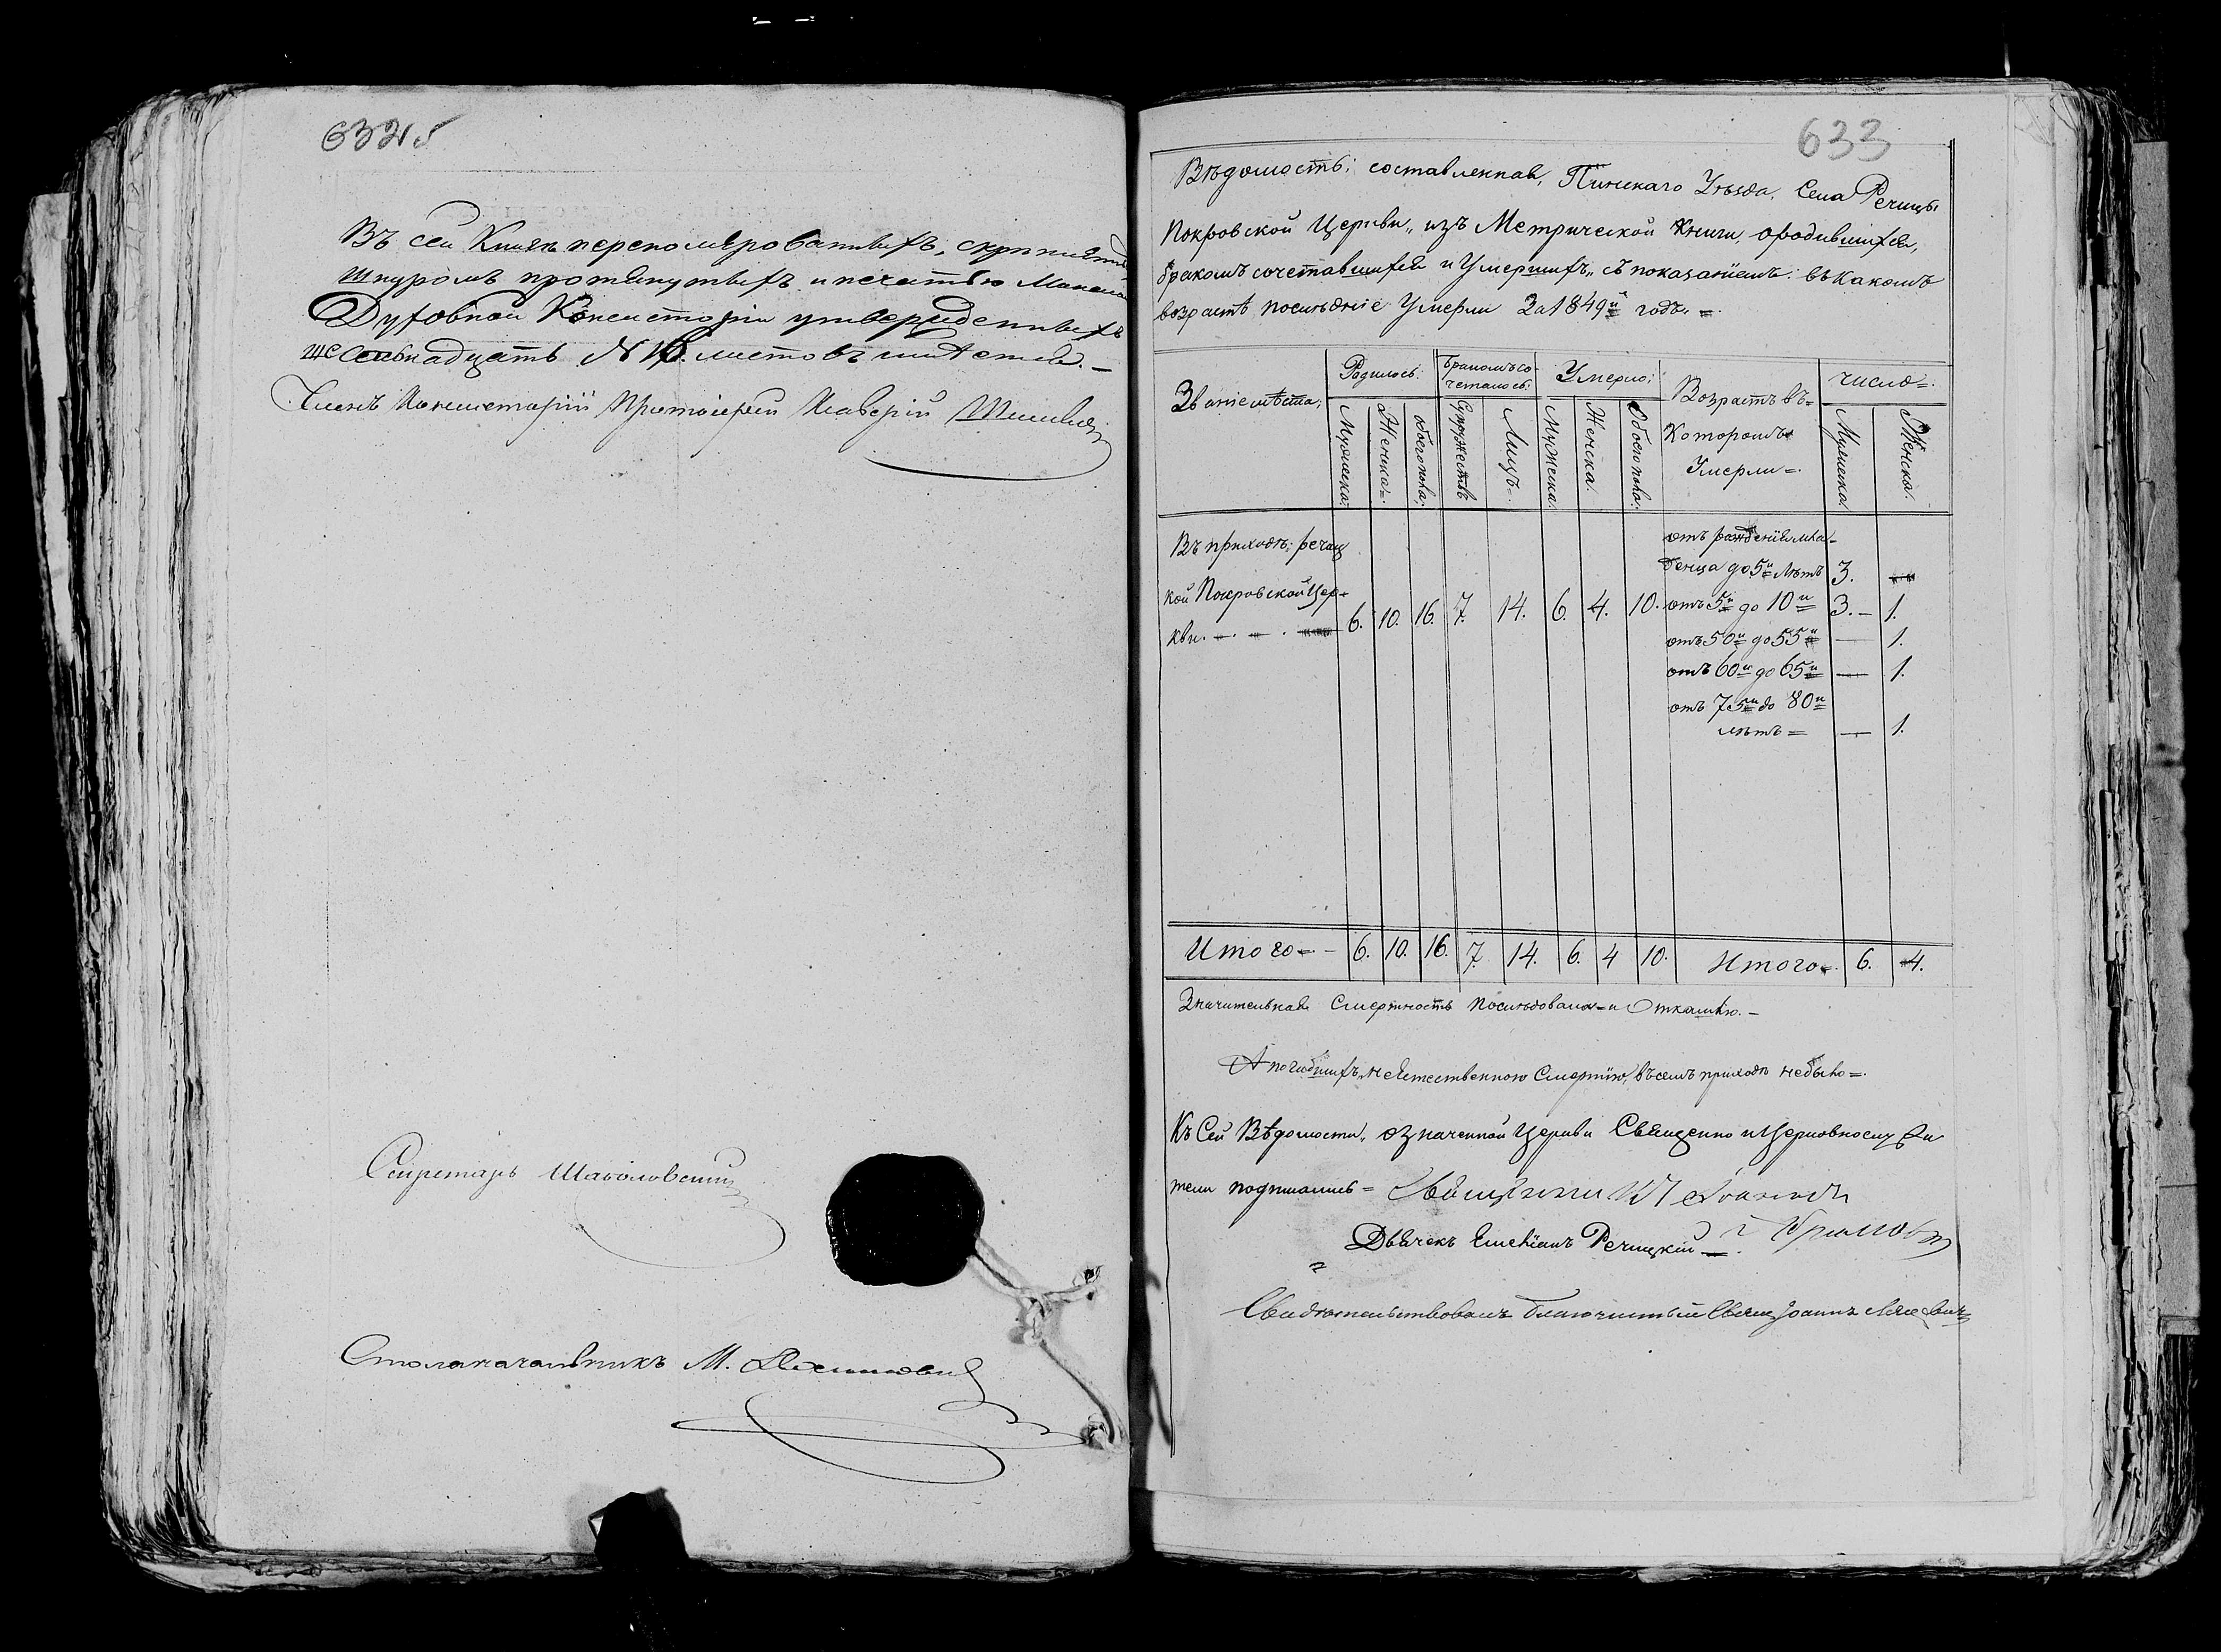 632об
Въ сей Книгѣ перенумерованныхъ, скрѣпленныхъ
шнуромъ протянутыхъ и печатью Минской
Духовной Консисторіи утвержденныхъ
шестнадцать № 16. листовъ имѣется. —
Членъ Консисторіи Протоіерей
Секретарь
Столоначальникъ М.
633
Вѣдомость; составленная, Пинскаго Уѣзда, Села Речицы
Покровской Церкви, изъ Метрической Книги, ородившихся,
бракомъ сочетавшихся и Умершихъ, съ показаніемъ: въ какомъ
возрастѣ послѣдніе Умерли За 1849й годъ =.
Званіе мѣста;
Родилось:
Бракомъ со-
четалось:
Умерло:
Возрастъ въ=
Которомъ
Умерли =.
число =.
Мужеска;
Женска =.
обоего пола;
Супружествъ
Лицъ =.
Мужеска.
Женска.
Обоего пола.
Мужеска.
Женска.
Въ приходѣ; речиц
кой Покровской Цер-
кви. 6. 10. 16. 7. 14. 6. 4. 10.
отъ рожденія мла-
денца до 5и лѣтъ 3. —
отъ 5и до 10и 3. — 1.
отъ 50и до 55и — 1.
отъ 60и до 65и — 1.
отъ 75и до 80и
лѣтъ = — 1.
Итого = - 6. 10. 16. 7. 14. 6. 4 10. Итого =. 6. 4.
Значительная Смертность послѣдовала = Откашлю. —
А погибшихъ, неестественною Смертію, въ семъ приходѣ небыло =.
Къ Сей Вѣдомости, означенной Церкви Священно и Церковнослужи
тели подписались = Священникъ
Дьячекъ Емеліанъ Речицкій
Свидѣтельствовалъ Благочинный Священ Іоаннъ